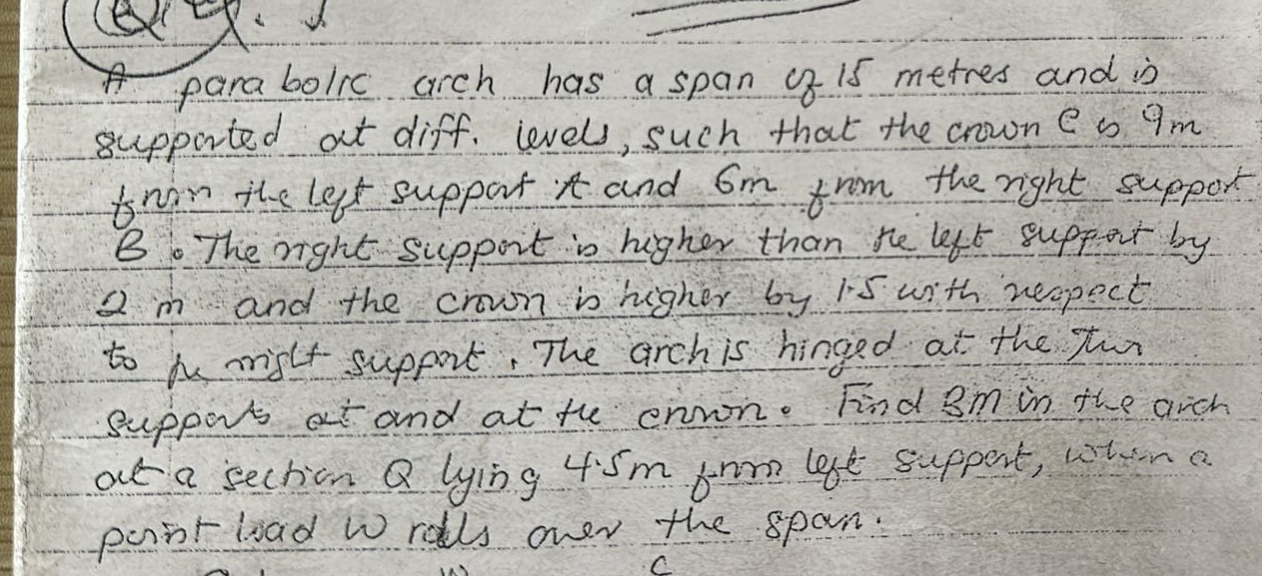 Q
A parabolic arch has a span of 15 metres and is
supported at diff. levels, such that the crown C is 9m
from the left support A and 6m from the right support
B. The right support is higher than the left support by
2 m and the crown is higher by 1.5 with respect
to the right support. The arch is hinged at the two
supports at and at the crown. Find BM in the arch
at a section Q lying 4.5m from left support, when a
point load W rolls over the span.
W C